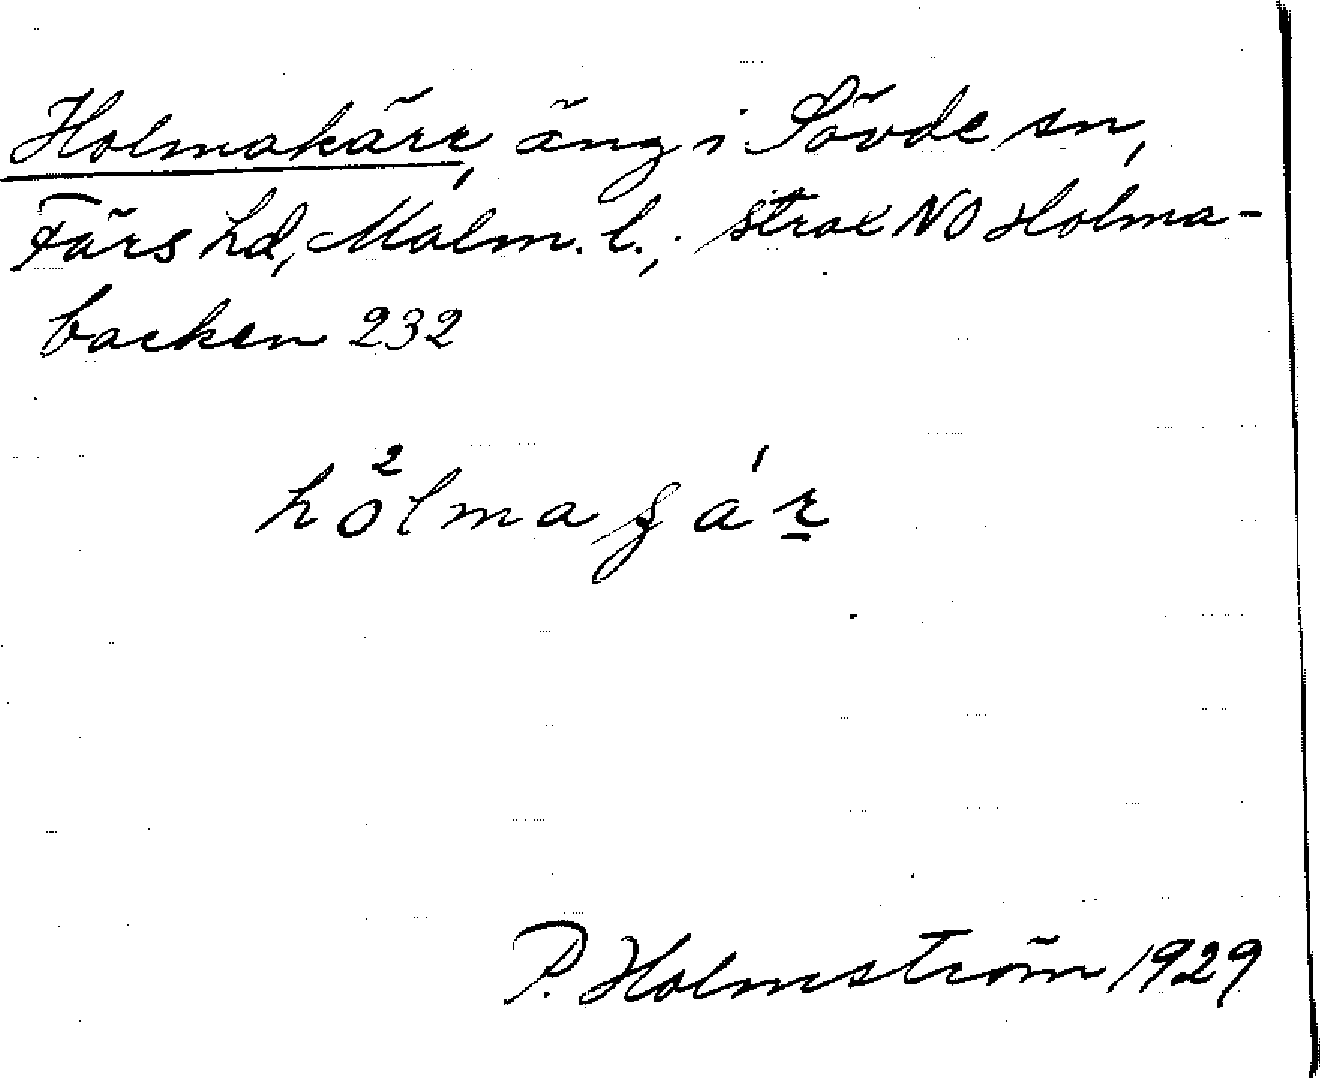 Holmakärr, äng i Sövde sn,
Färs hd, Malm. l., strax NO Holma-
backen 232
P. Holmström 1929